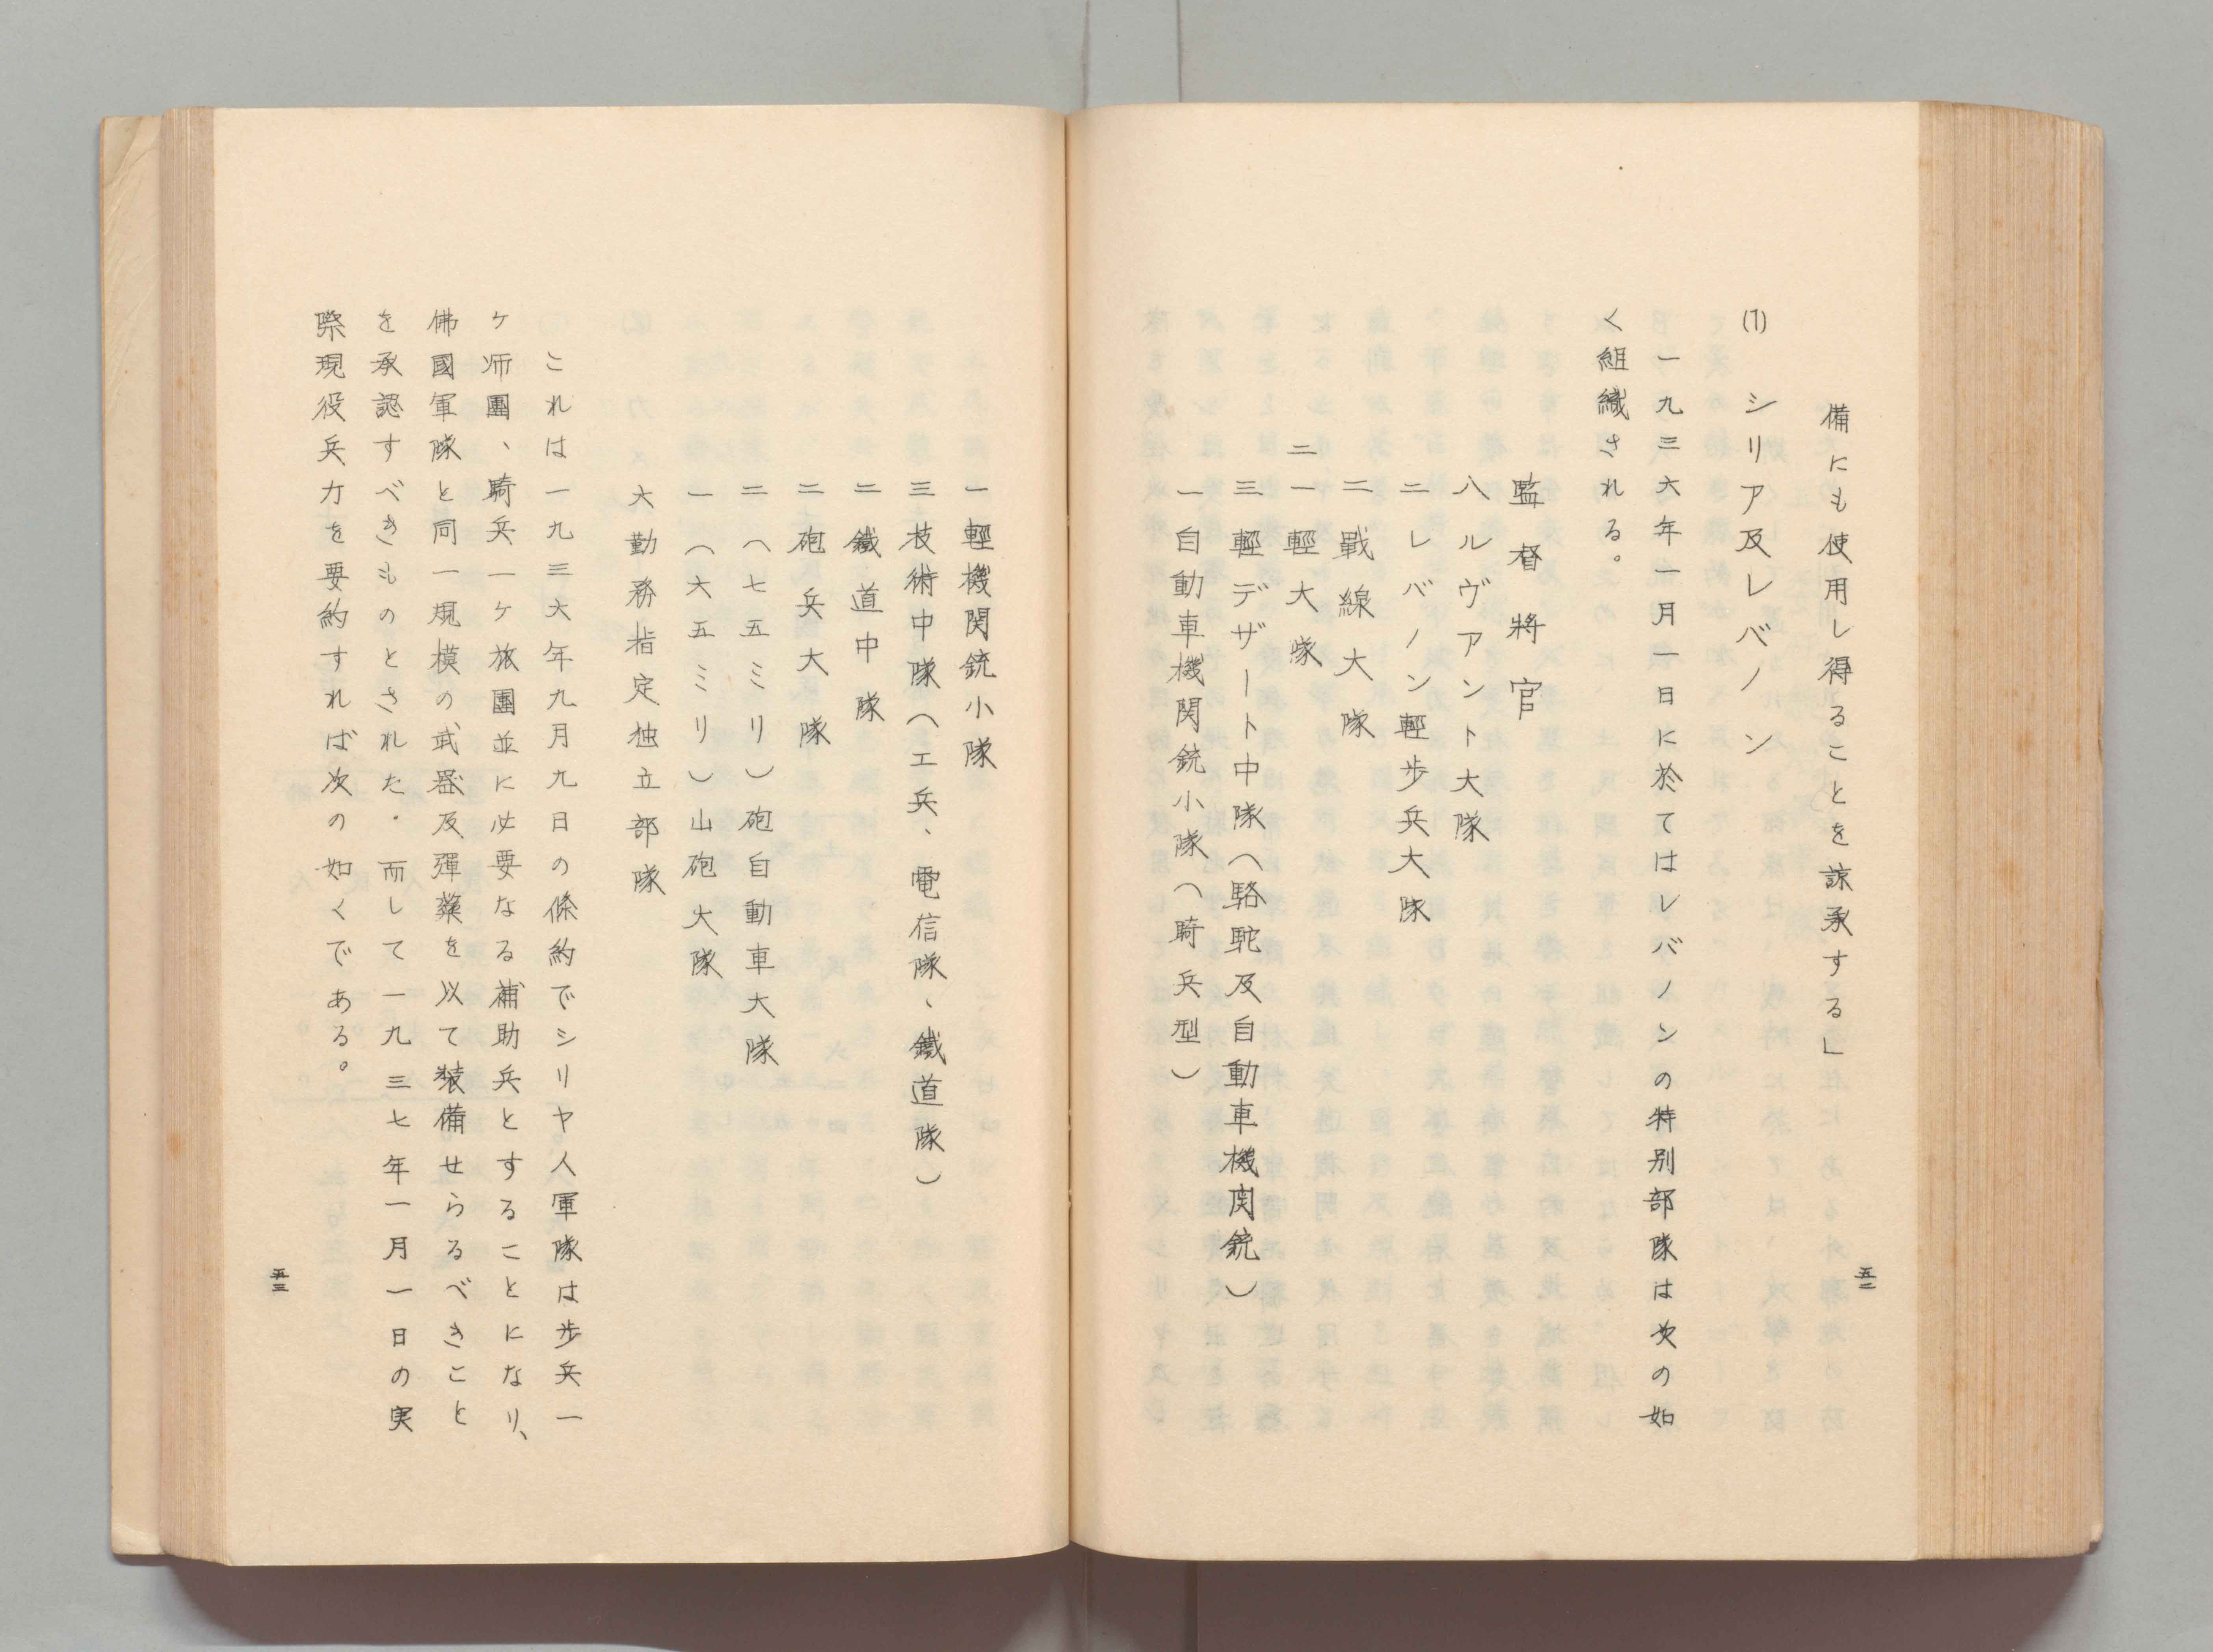 備にも使用し得ることを諒承する」
(1) シリア及レバノン
一九三六年一月一日に於てはレバノンの特別部隊は次の如
く組織される。
監督将官
八ルヴアント大隊
二レバノン輕歩兵大隊
二戰線大隊
二一輕大隊
三輕デザート中隊（駱駝及自動車機関銃）
一自動車機関銃小隊（騎兵型）
五二
一輕機関銃小隊
三技術中隊（工兵、電信隊、鐵道隊）
二鐵道中隊
二砲兵大隊
二（七五ミリ）砲自動車大隊
一（六五ミリ）山砲大隊
六勤務指定独立部隊
これは一九三六年九月九日の條約でシリヤ人軍隊は歩兵一
ケ师團、騎兵一ケ旅團並に必要なる補助兵とすることになり、
佛國軍隊と同一規模の武器及彈藥を以て装備せらるべきこと
を承認すべきものとされた．而して一九三七年一月一日の実
際現役兵力を要約すれば次の如くである。
五三